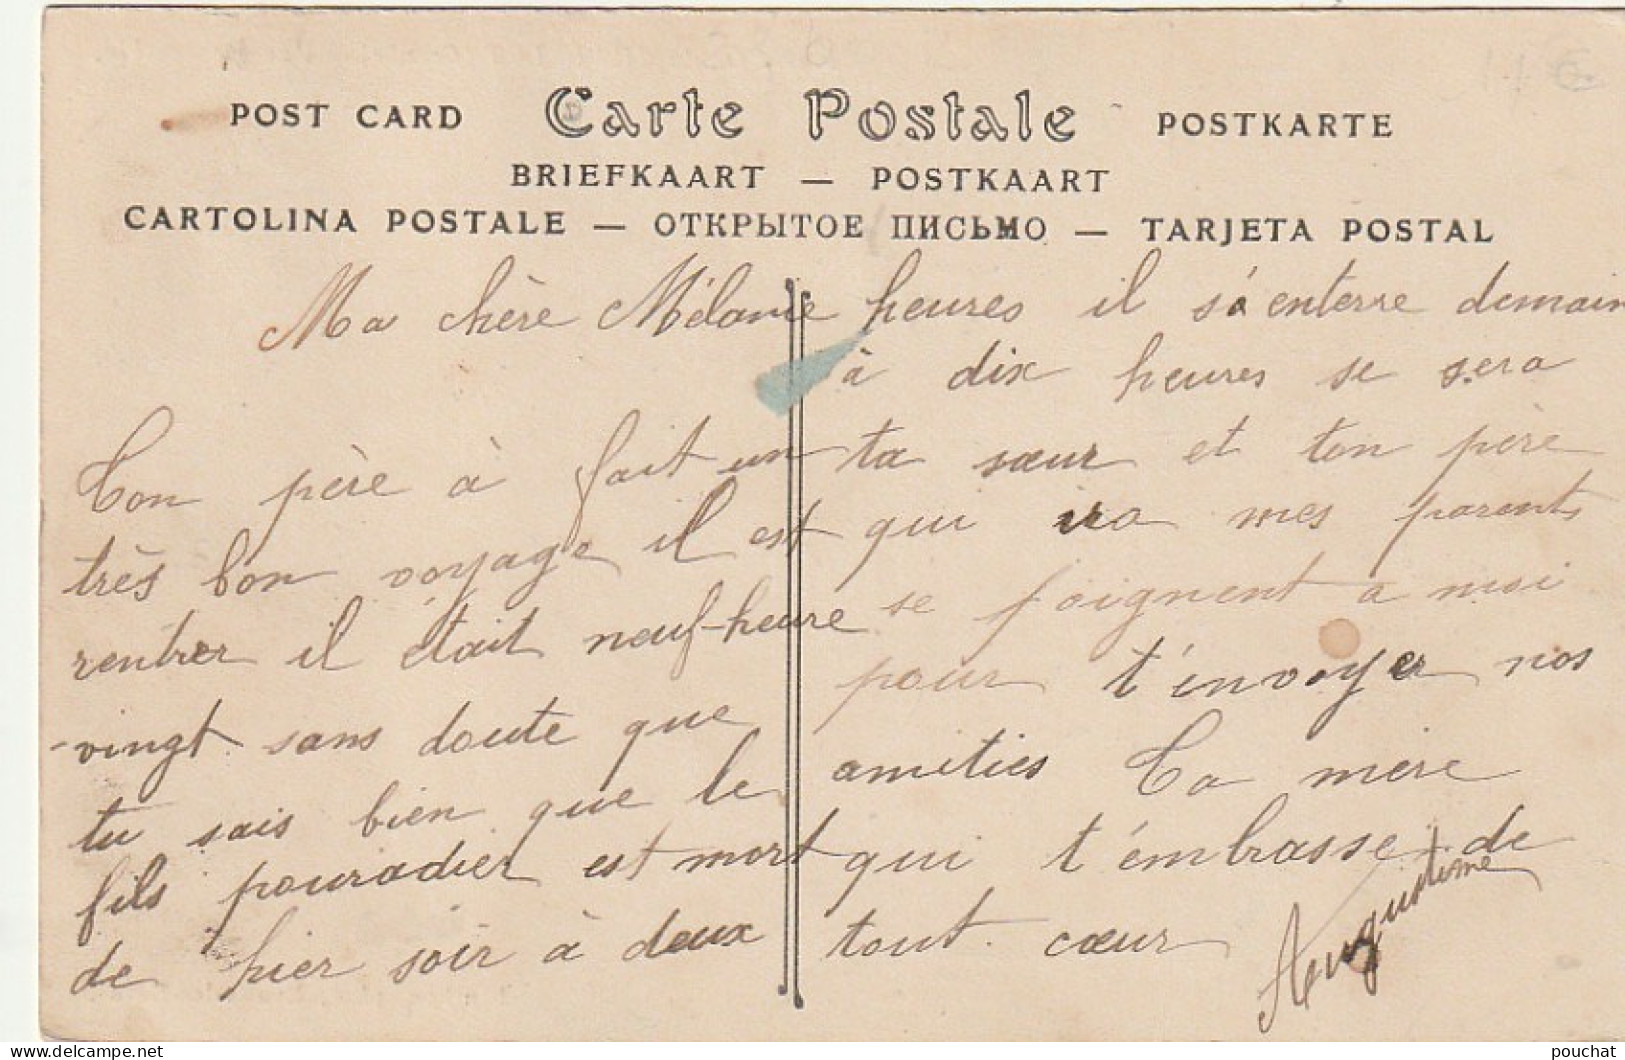 POST CARD Carte Postale POSTKARTE
BRIEFKAART — POSTKAART
CARTOLINA POSTALE — ОТКРЫТОЕ ПИСЬМО — TARJETA POSTAL
Ma chère Mélanie
Ton père à fait un
très bon voyage il est
rentrer il était neuf-heure
vingt sans doute que
tu sais bien que le
fils pouradier est mort
de hier soir à deux
heures il s'a enterre demain
à dix heures se sera
ta sœur et ton père
qui ira mes parents
se joignent a moi
pour t'envoyer nos
amities Ta mère
qui t'embrasse de
tout cœur
Augustine
pouchat